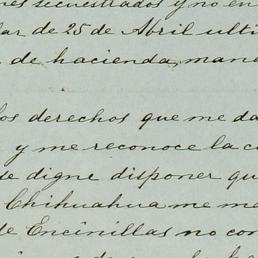 secuestrados y no en
lar de 25 de Abril ulti
de hacienda, man
los derechos que me da
y me reconoce la c
se digne disponer qu
Chihuahua me m
de Encinillas no con